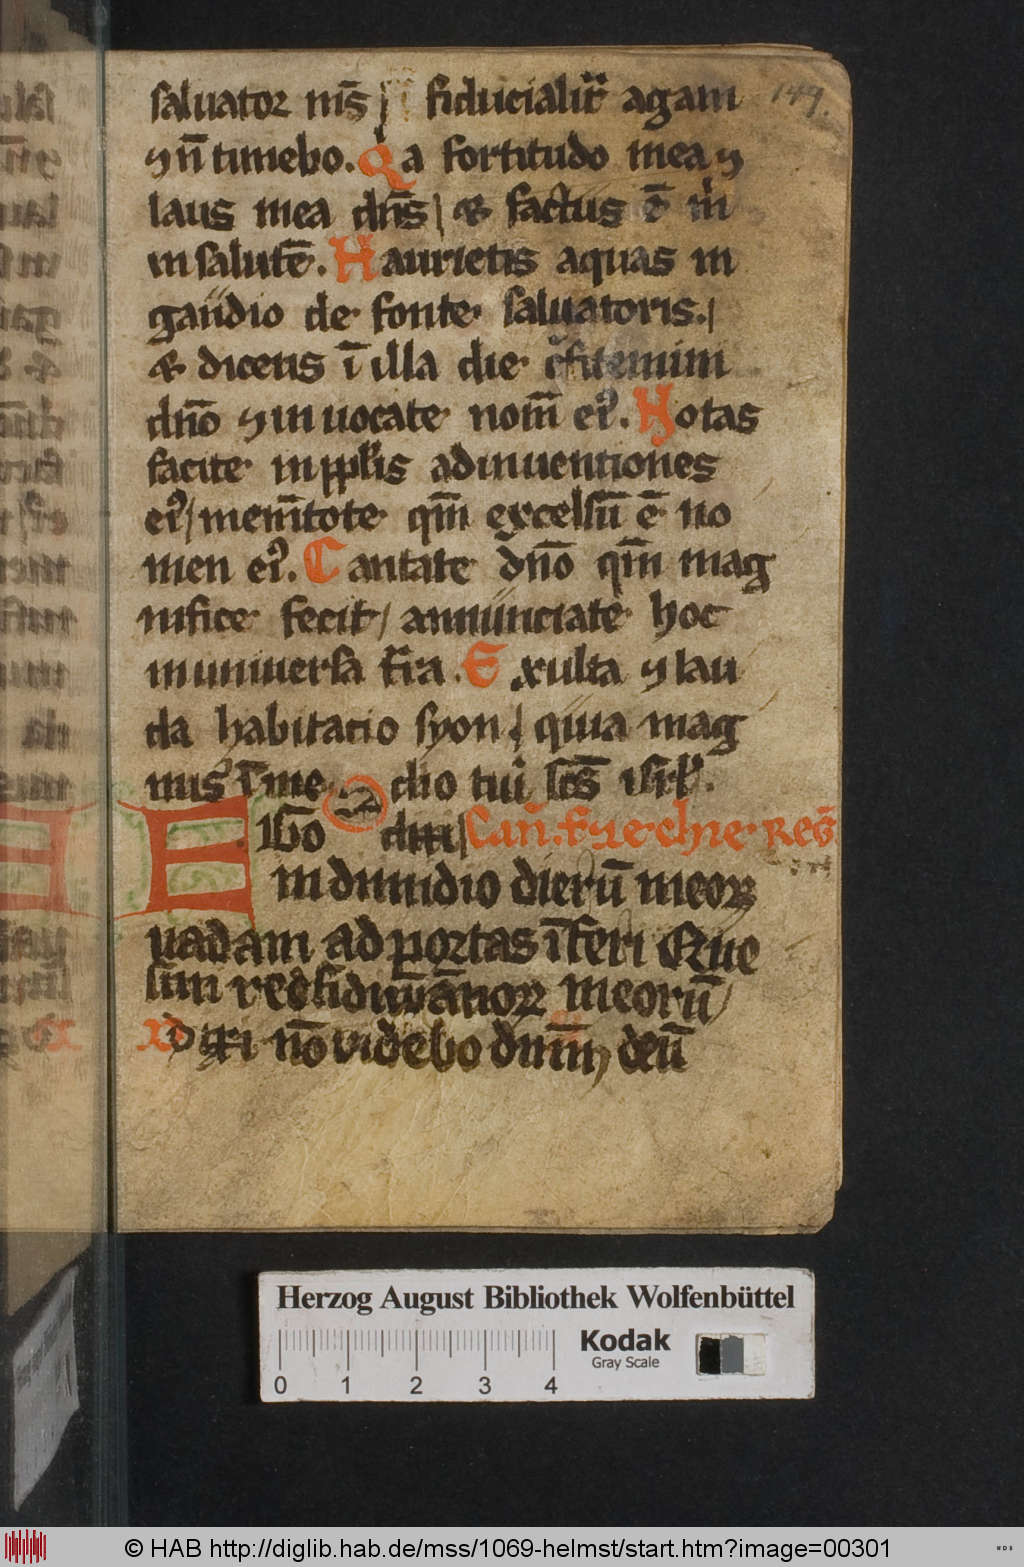 saluator n̄s fiducialit̄ agam 149.
⁊ n̄ timebo. Q̇a fortitudo mea ⁊
laus mea dn̄s & factus ē ṁ
in salutē. Haurietis aquas in
gaudio de fonte saluatoris.
& dicetis ī illa die ɔ̄fitemini
dn̄o ⁊ inuocate nom̄ eiꝰ. Notas
facite in pplis adinuentiones
eiꝰ mem̄tote qm̄ excelsū ē no
men eiꝰ. Cantate dn̄o qm̄ mag
nifice fecit annunciate hoc
in uniuersa t̄ra. Exulta ⁊ lau
da habitatio syon quia mag
nus ī me dio tui sc̄s isrl̄.
EGo dixi Cāt. Eȥechie Reḡ
in dimidio dierū meoꝝ
vadam ad portas īferi Que
siui residuū annoꝝ meorū
dixi nō videbo dnm̄ deū
Herzog August Bibliothek Wolfenbüttel
Kodak
Gray Scale
0 1 2 3 4
© HAB http://diglib.hab.de/mss/1069-helmst/start.htm?image=00301